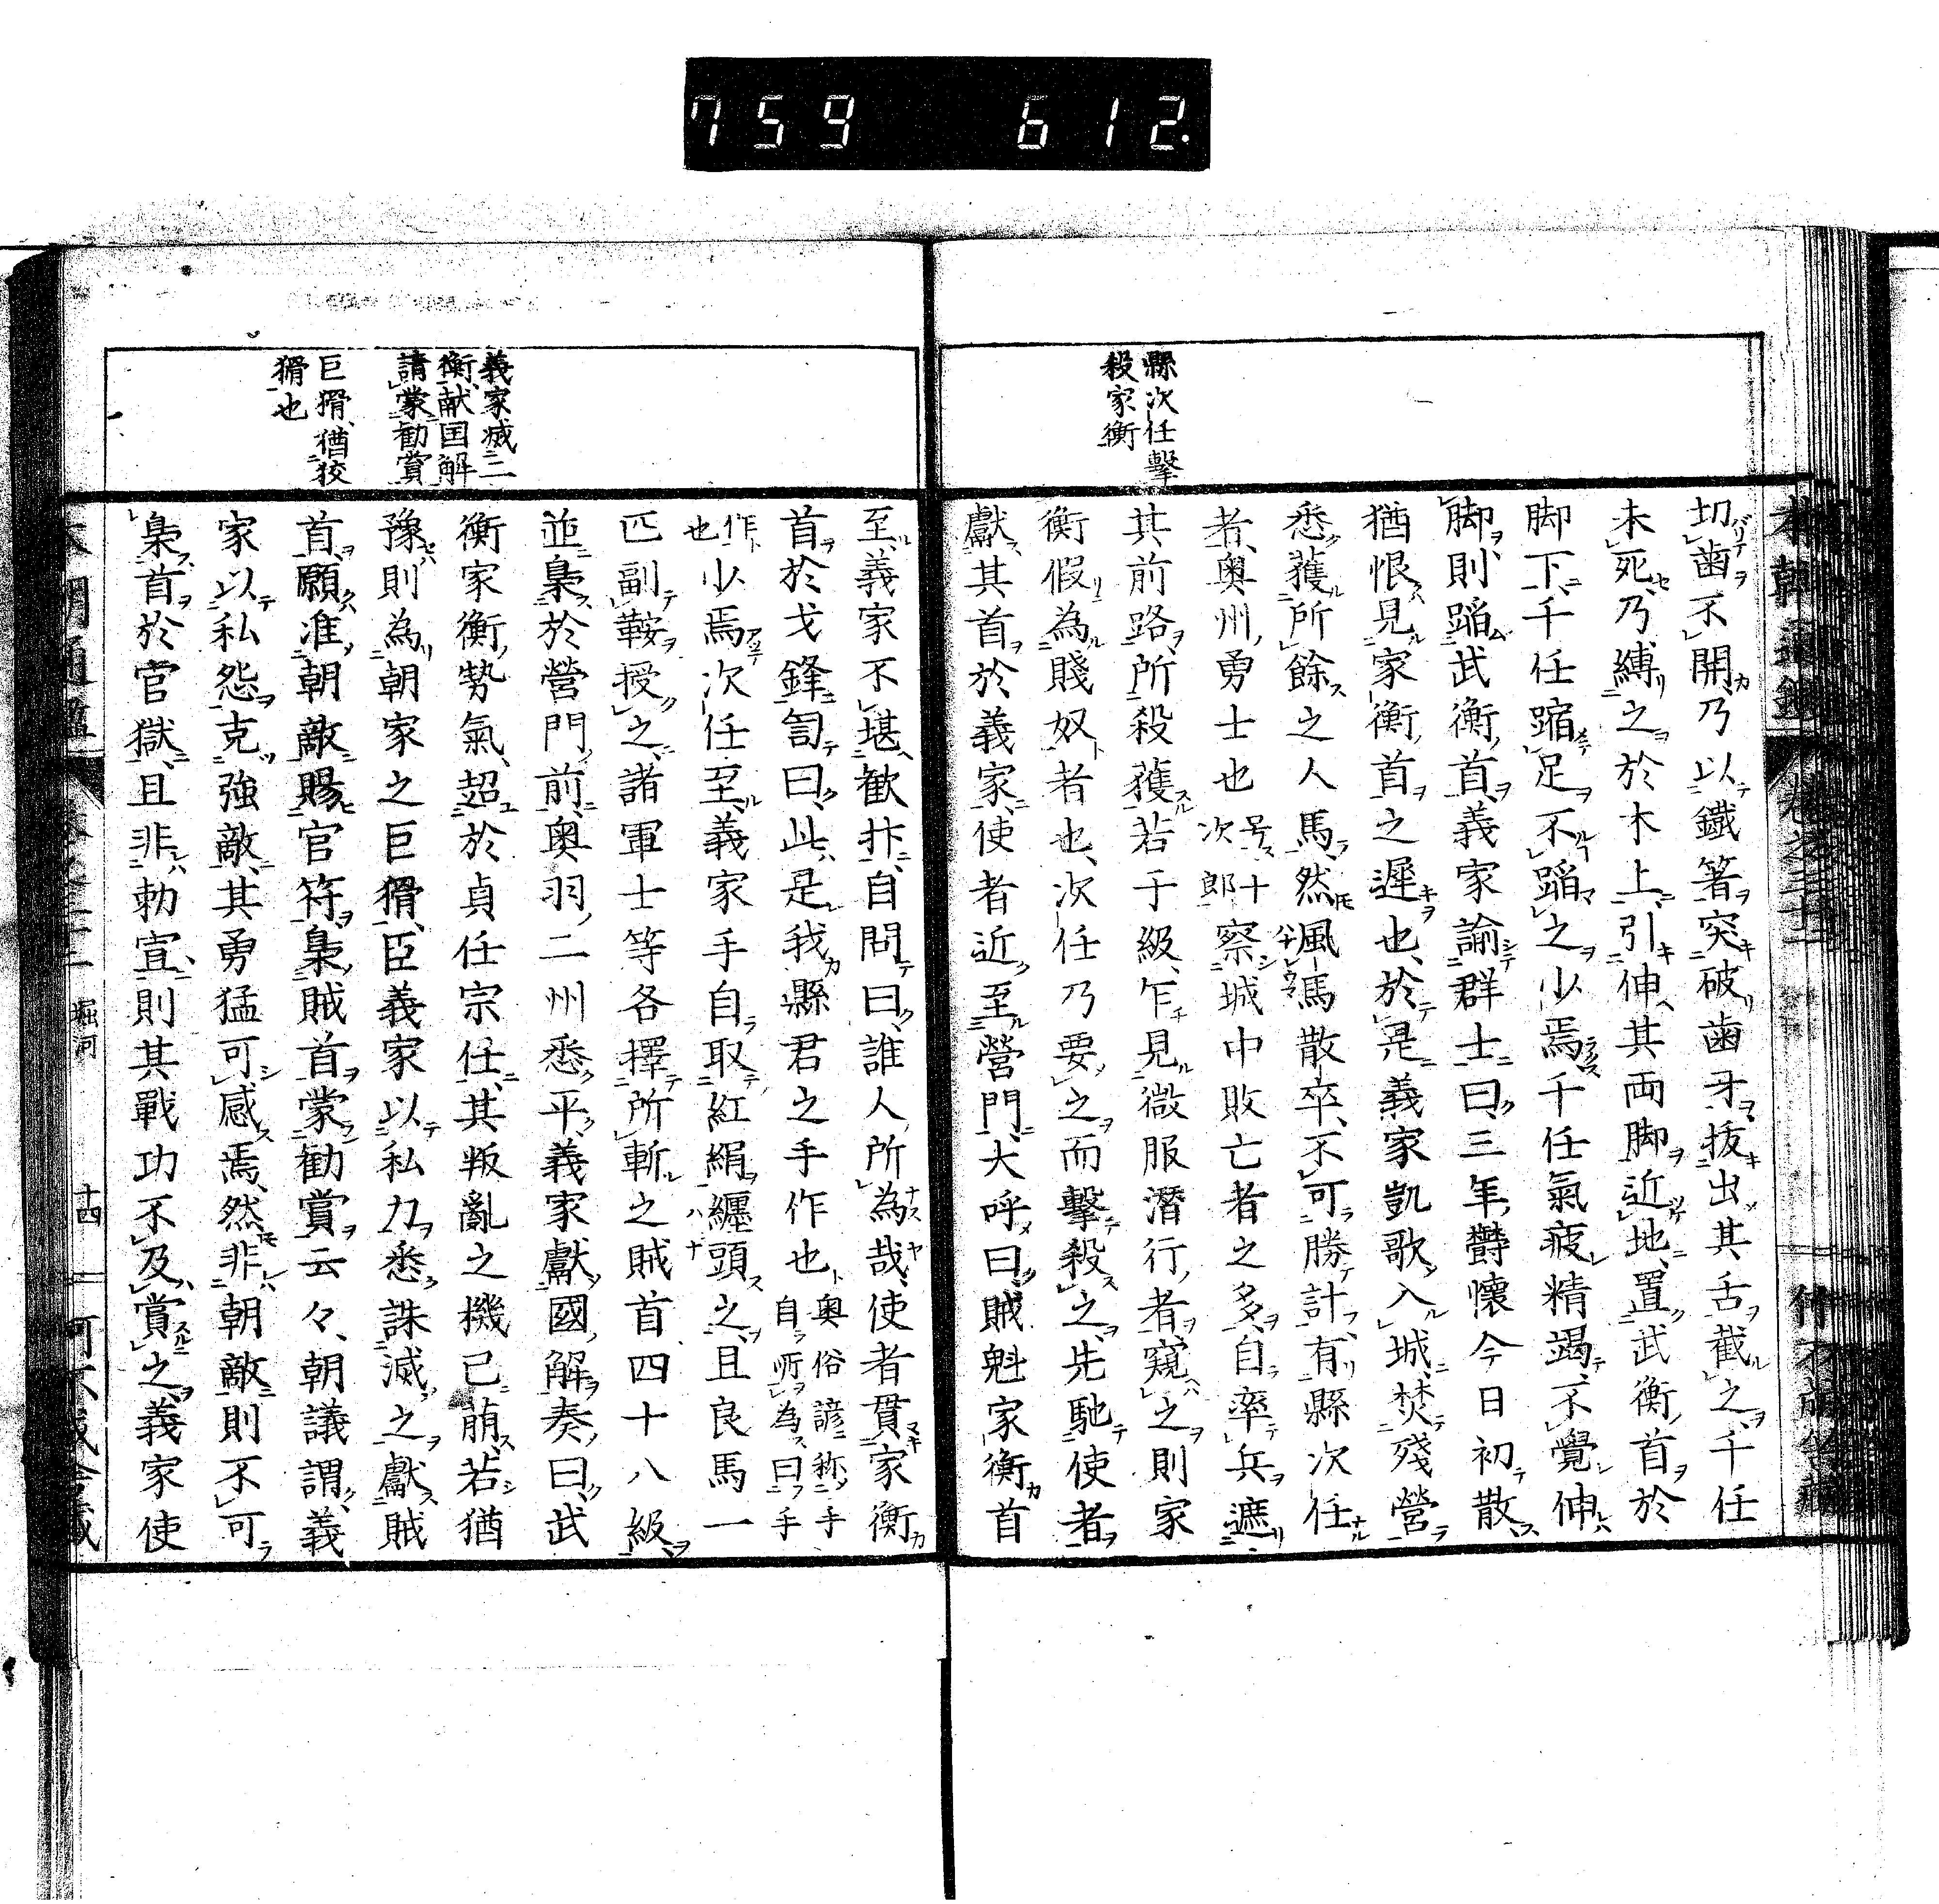 759 612.
縣次任擊
殺家衡
切歯不開乃以鐵箸突破歯牙拔出其舌截之千任
未死乃縛之於木上引伸其両脚近地置武衡首於
脚下千任蹜足不蹈之少焉千任氣疲精竭不覺伸
脚則蹈武衡首義家諭群士曰三年欝懷今日初散
猶恨見家衡首之遲也於是義家凱歌入城焚殘營
悉獲所餘之人馬然風馮散卒不可勝計有縣次任
者奥州勇士也号十次郎察城中敗亡者之多自率兵遮
其前路所殺獲若于級乍見微服潛行者窺之則家
衡假為賤奴者也次任乃要之而擊殺之先馳使者
獻其首於義家使者近至營門大呼曰賊魁家衡首
義家滅二
衡献国解
請蒙勧賞
巨猾猶狡
猾也
至義家不堪歓抃自問曰誰人所為哉使者貫家衡
首於戈鋒訇曰此是我縣君之手作也奥俗諺称手自所為曰手
作也少焉次任至義家手自取紅絹纒頭之且良馬一
匹副鞍授之諸軍士等各擇所斬之賊首四十八級
並梟於營門前奥羽二州悉平義家獻國解奏曰武
衡家衡勢氣超於貞任宗任其叛亂之機已萠若猶
豫則為朝家之巨猾臣義家以私力悉誅滅之獻賊
首願准朝敵賜官符梟賊首蒙勧賞云々朝議謂義
家以私怨克強敵其勇猛可感焉然非朝敵則不可
梟首於官獄且非勅宣則其戰功不及賞之義家使
堀河
十四